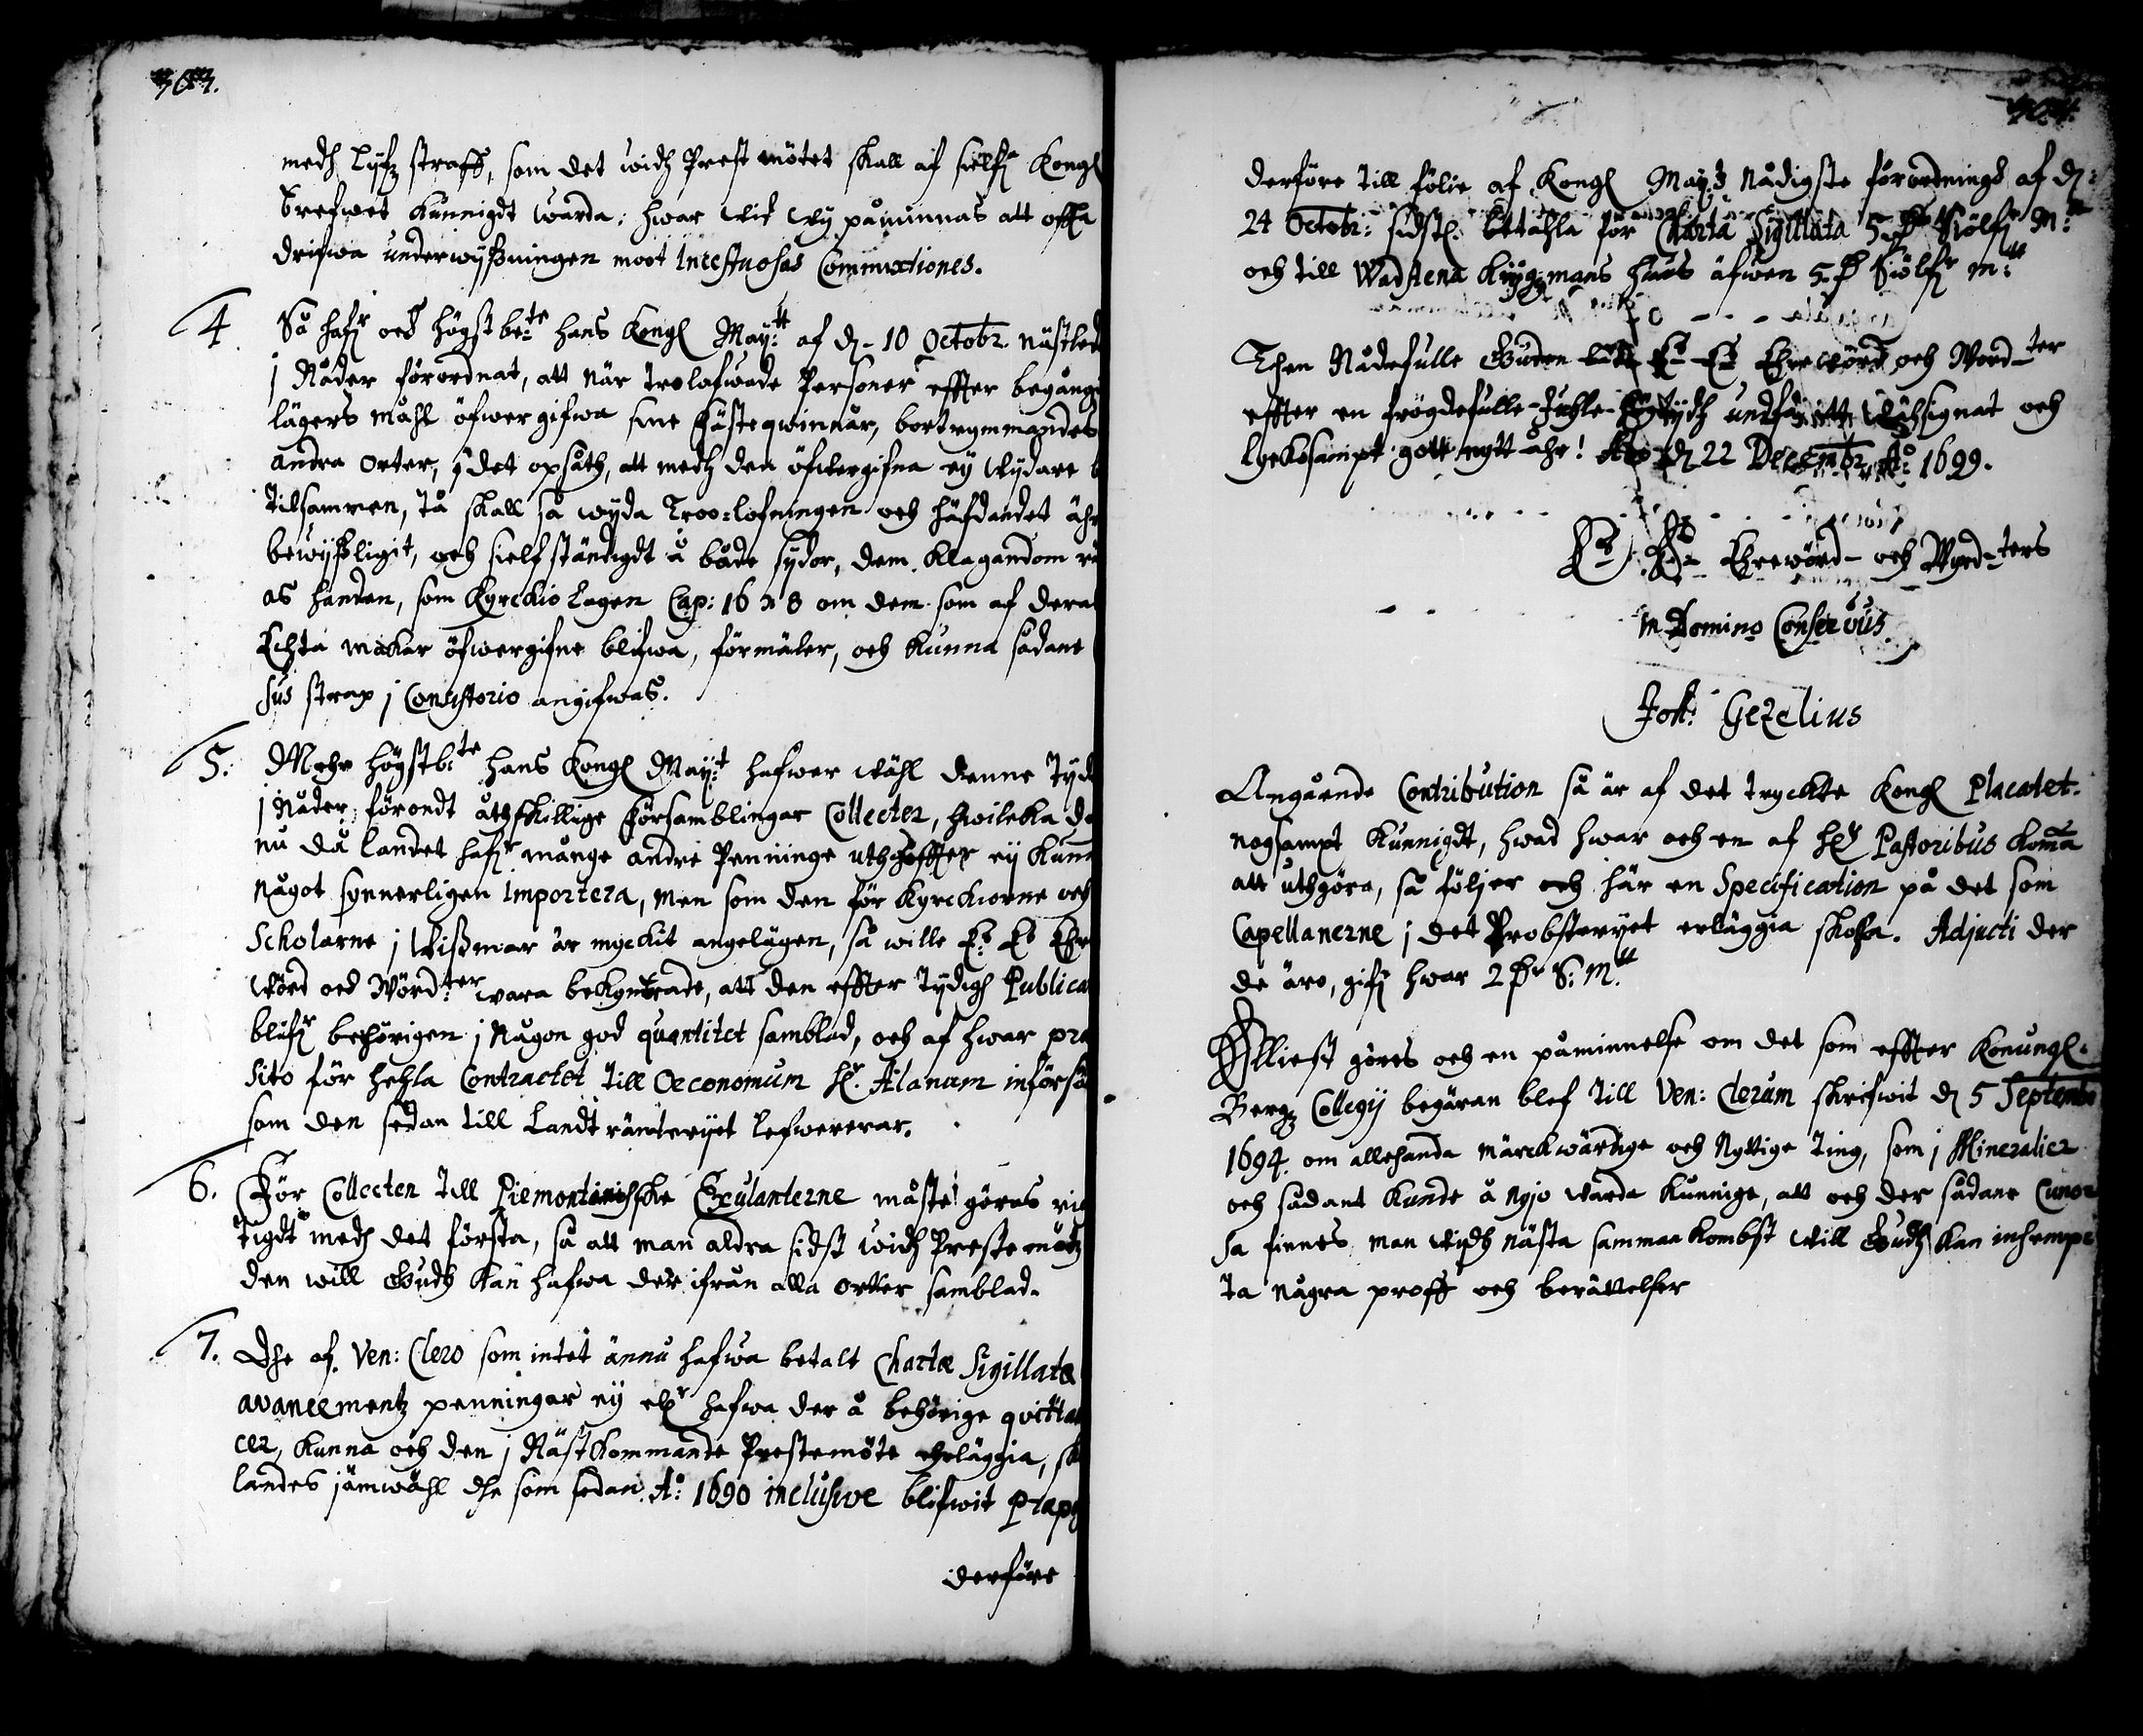 303.
medh Lyfz straff, som det widh Prest mötet skall af sielfa Kongl
Brefwet kunnigdt warda; hwar wid wy påminnas att offta
drifwa underwyßningen moot Incestuosas Commixtiones.
4 Så hafr och högst bete hans Kongl May:tt af d. 10 Octobr. nästled
j Nåder förordnat, att när trolofwade Personer effter begånge
lägers måhl öfwergifwa sine Fästeqwinnor, bortrymmandes
andra orter, j det opsåth, att medh den öfwergifna ey wydare
tilsammen, tå skall så wyda Troo=lofningen och häfdandet ähr
bewyßligit, och sielfständigdt å både sydor, dem klagandom rä
as handan, som Kyrckio Lagen Cap: 16 § 8 om dem som af dera
Echta makar öfwergifne blifwa, förmäler, och kunna sådane
sus strax j Consistorio angifwas.
5. Mehr högstb:te hans Kongl May:t hafwer wähl denne Tyd
j Nåder förondt åthskillige Församblingar Collecter, hwilcka
nu då landet hafr många andre Penninge uthgiffter ey kunn
något synnerligen importera, men som den för Kyrckiorne och
Scholarne j Wißmar är myckit angelägen, så wille Es Es Ehr
wörd och Wörd:ter wara bekymbrade, att den effter tydigh Publica
blifr behörigen j någon god quantitet samblad, och af hwar præ
sito för hehla Contractet till Oeconomum Hr. Alanum införsä
som den sedan till Landtränteryet lefwererar.
6. För Collecten till Piemontanischke Exulanterne måste göras rich
tigdt medh det första, så att man aldra sidst widh Preste mötz
den will Gudh kan hafwa der ifrån alla orter samblad.
7. Dhe af Ven: Clero som intet ännu hafwa betalt Chartæ Sigillatæ
avancementz penningar ey elr hafwa der å behörige qvittan
cer, kunna och den j Nästkommande Prestemöte erläggia, sk
landes jämwähl dhe som sedan A:o 1690 inclusive blifwit Præpo
derföre
304.
derföre till fölie af Kongl May:tz Nådigste förordningh af d:
24 Octobr: sidstl. bethahla för Charta Sigillata 5 dr Siölfr M:tt
och till Wadstena Krygzmans huus äfwen 5 dr Siölfr m:tt
Then Nådefulle Guden låte Es Es Ehrewörd och Word-ter
effter en frögdefulle Juhle-Högtydh undfå itt wählsignat och
lyckosampt gott nytt åhr! Åbo d 22 Decembr. A:o 1699.
Es Es Ehrewörd- och Wyrd-ters
in Domino Conservus.
Joh: Gezelius
Angående Contribution så är af det tryckte Kongl Placatet
nogsampt kunnigdt, hwad hwar och en af Hrr Pastoribus komma
att uthgöra, så följer och här en Specification på det som
Capellanerne j det Probsteryet erläggia skola. Adjuncti der
de äro, gifr hwar 2 dr S: M:tt
Alliest göres och en påminnelse om det som effter Konungl.
Bergz Collegij begäran blef till Ven: Clerum skrifwit d 5 Septembr
1694. om allehanda märckwärdige och Nyttige Ting, som j Mineralier
och sådant kunde å nyjo warda kunnige, att och der sådane Curio
sa finnes man widh nästa sammankombst will Gudh kan insempe
ta några proff och berättelser